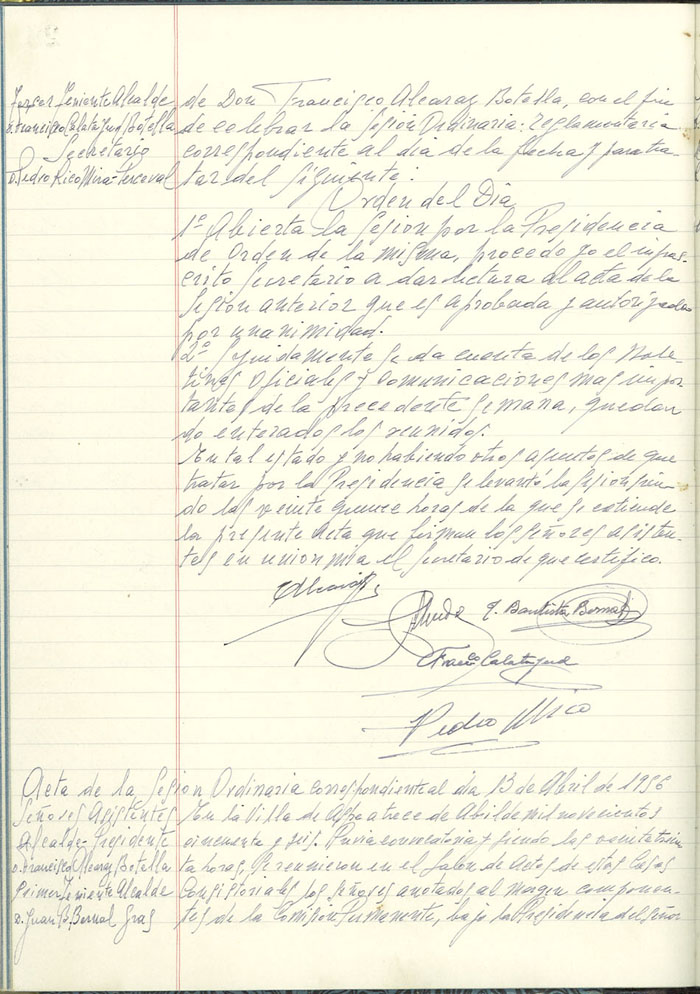 Tercer Teniente Alcalde
D. Francisco Calatayud Botella
Secretario
D. Pedro Rico Mira-Perceval
de Don Francisco Alcaraz Botella, con el fin
de celebrar la Sesion Ordinaria. Reglamentaria
correspondiente al dia de la fecha y para tra-
tar del siguiente:
Orden del Dia
1º Abierta la Sesion por la Presidencia
de Orden de la misma, procedo yo el infras-
crito Secretario a dar lectura al acta de la
Sesion anterior que es aprobada y autorizada
por unanimidad.
2º Seguidamente se da cuenta de los Bole-
tines Oficiales y comunicaciones mas impor
tantes de la precedente semana, quedan
do enterados los reunidos.
En tal estado y no habiendo otros asuntos de que
tratar por la Presidencia se levantó la sesion sien
do las veinte quince horas de la que se extiende
la presente Acta que firman los señores asisten-
tes en union mia el Secretario de que certifico.
J. Bautista Bernal
Franco Calatayud
Pedro Rico
Acta de la Sesion Ordinaria correspondiente al dia 13 de Abril de 1956
Señores Asistentes
Alcalde-Presidente
D. Francisco Alcaraz Botella
Primer Teniente Alcalde
D. Juan B. Bernal Gras
En la Villa de a trece de Abril de mil novecientos
cincuenta y seis. Previa convocatoria y siendo las veinte
horas, se reunieron en el Salon de Actos de estas Casas
Consistoriales los Señores anotados al margen componen-
tes de la Comision Permanente, bajo la Presidencia del Señor